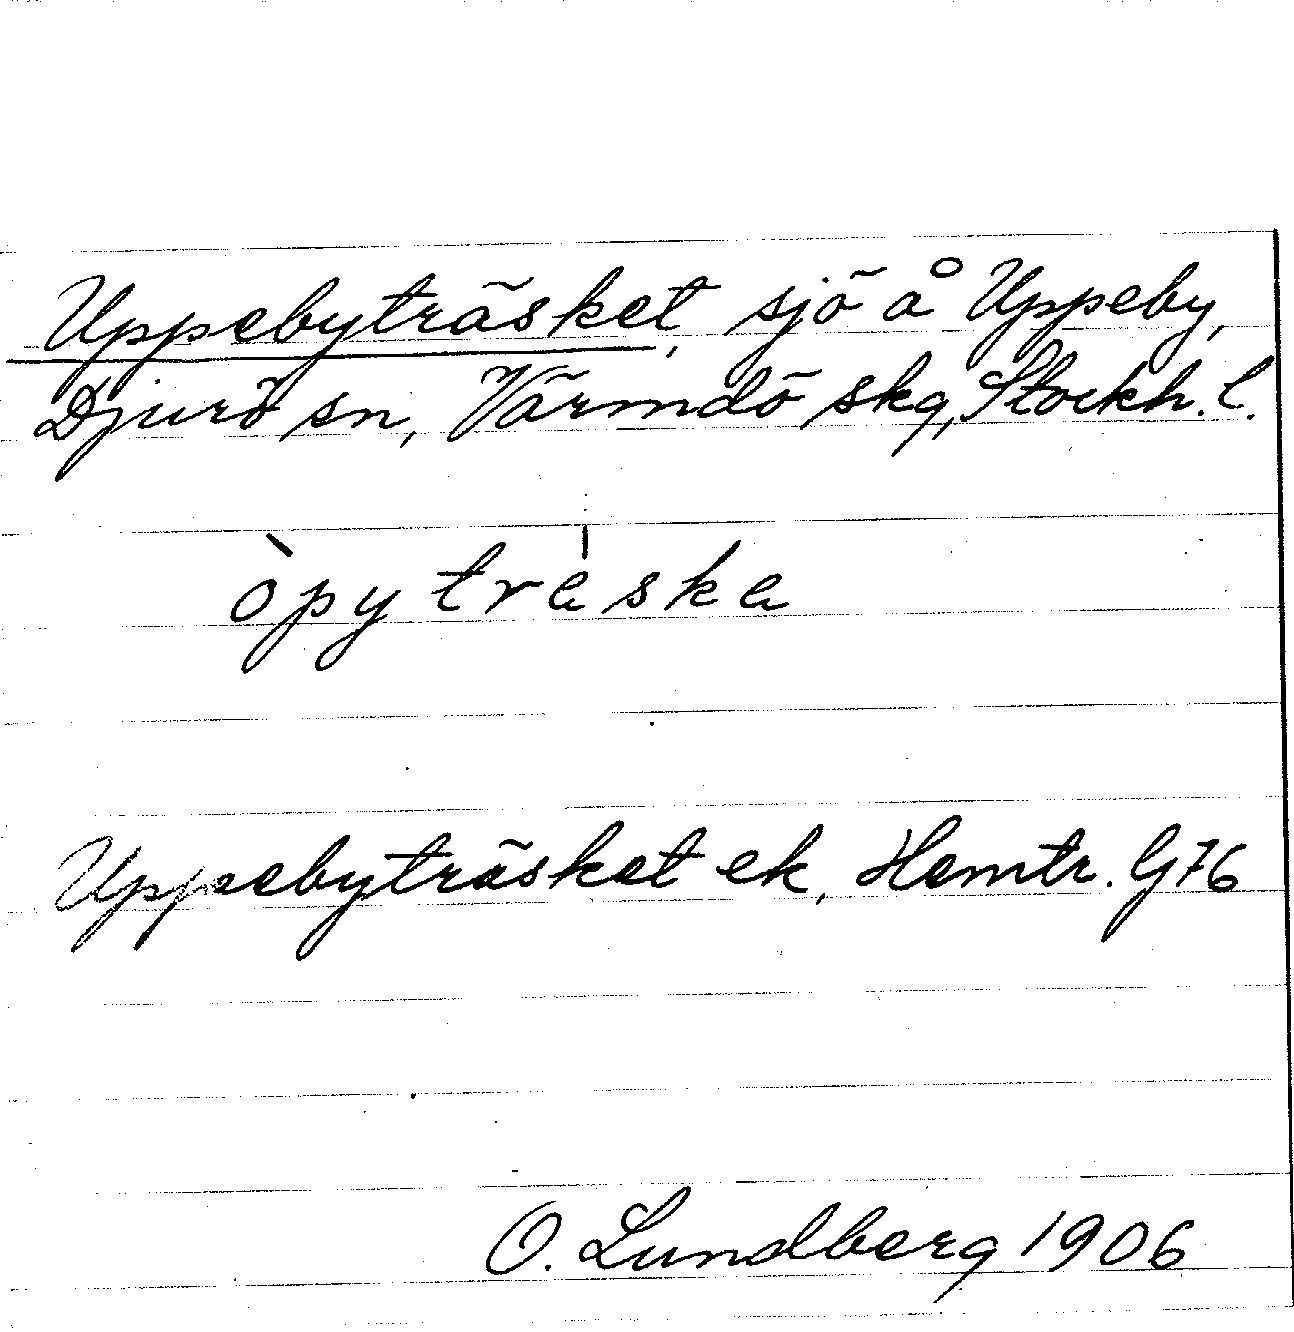 Uppebyträsket, sjö å Uppeby,
Djurö sn, Värmdö skg, Stockh. l.
òpytrèske
Uppebyträsket ek, Hemtr. G76
O. Lundberg 1906